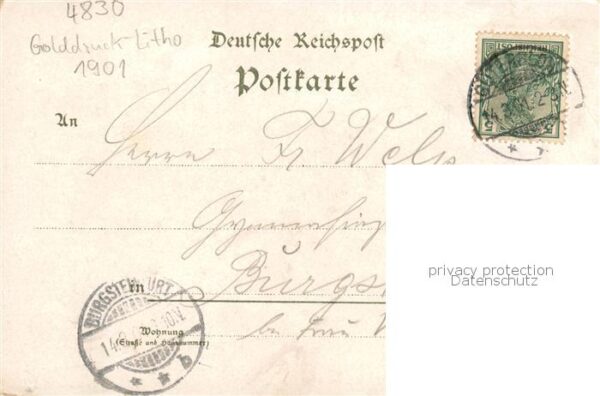 4830
Golddruck Litho
1901
Deutsche Reichspost
Postkarte
REICHSPOST
5
An
Herrn Fr. Wels
Burgst
in
BURGSTEINFURT
14.
Wohnung
(Straße und Hausnummer)
bei Frau
b
privacy protection
Datenschutz